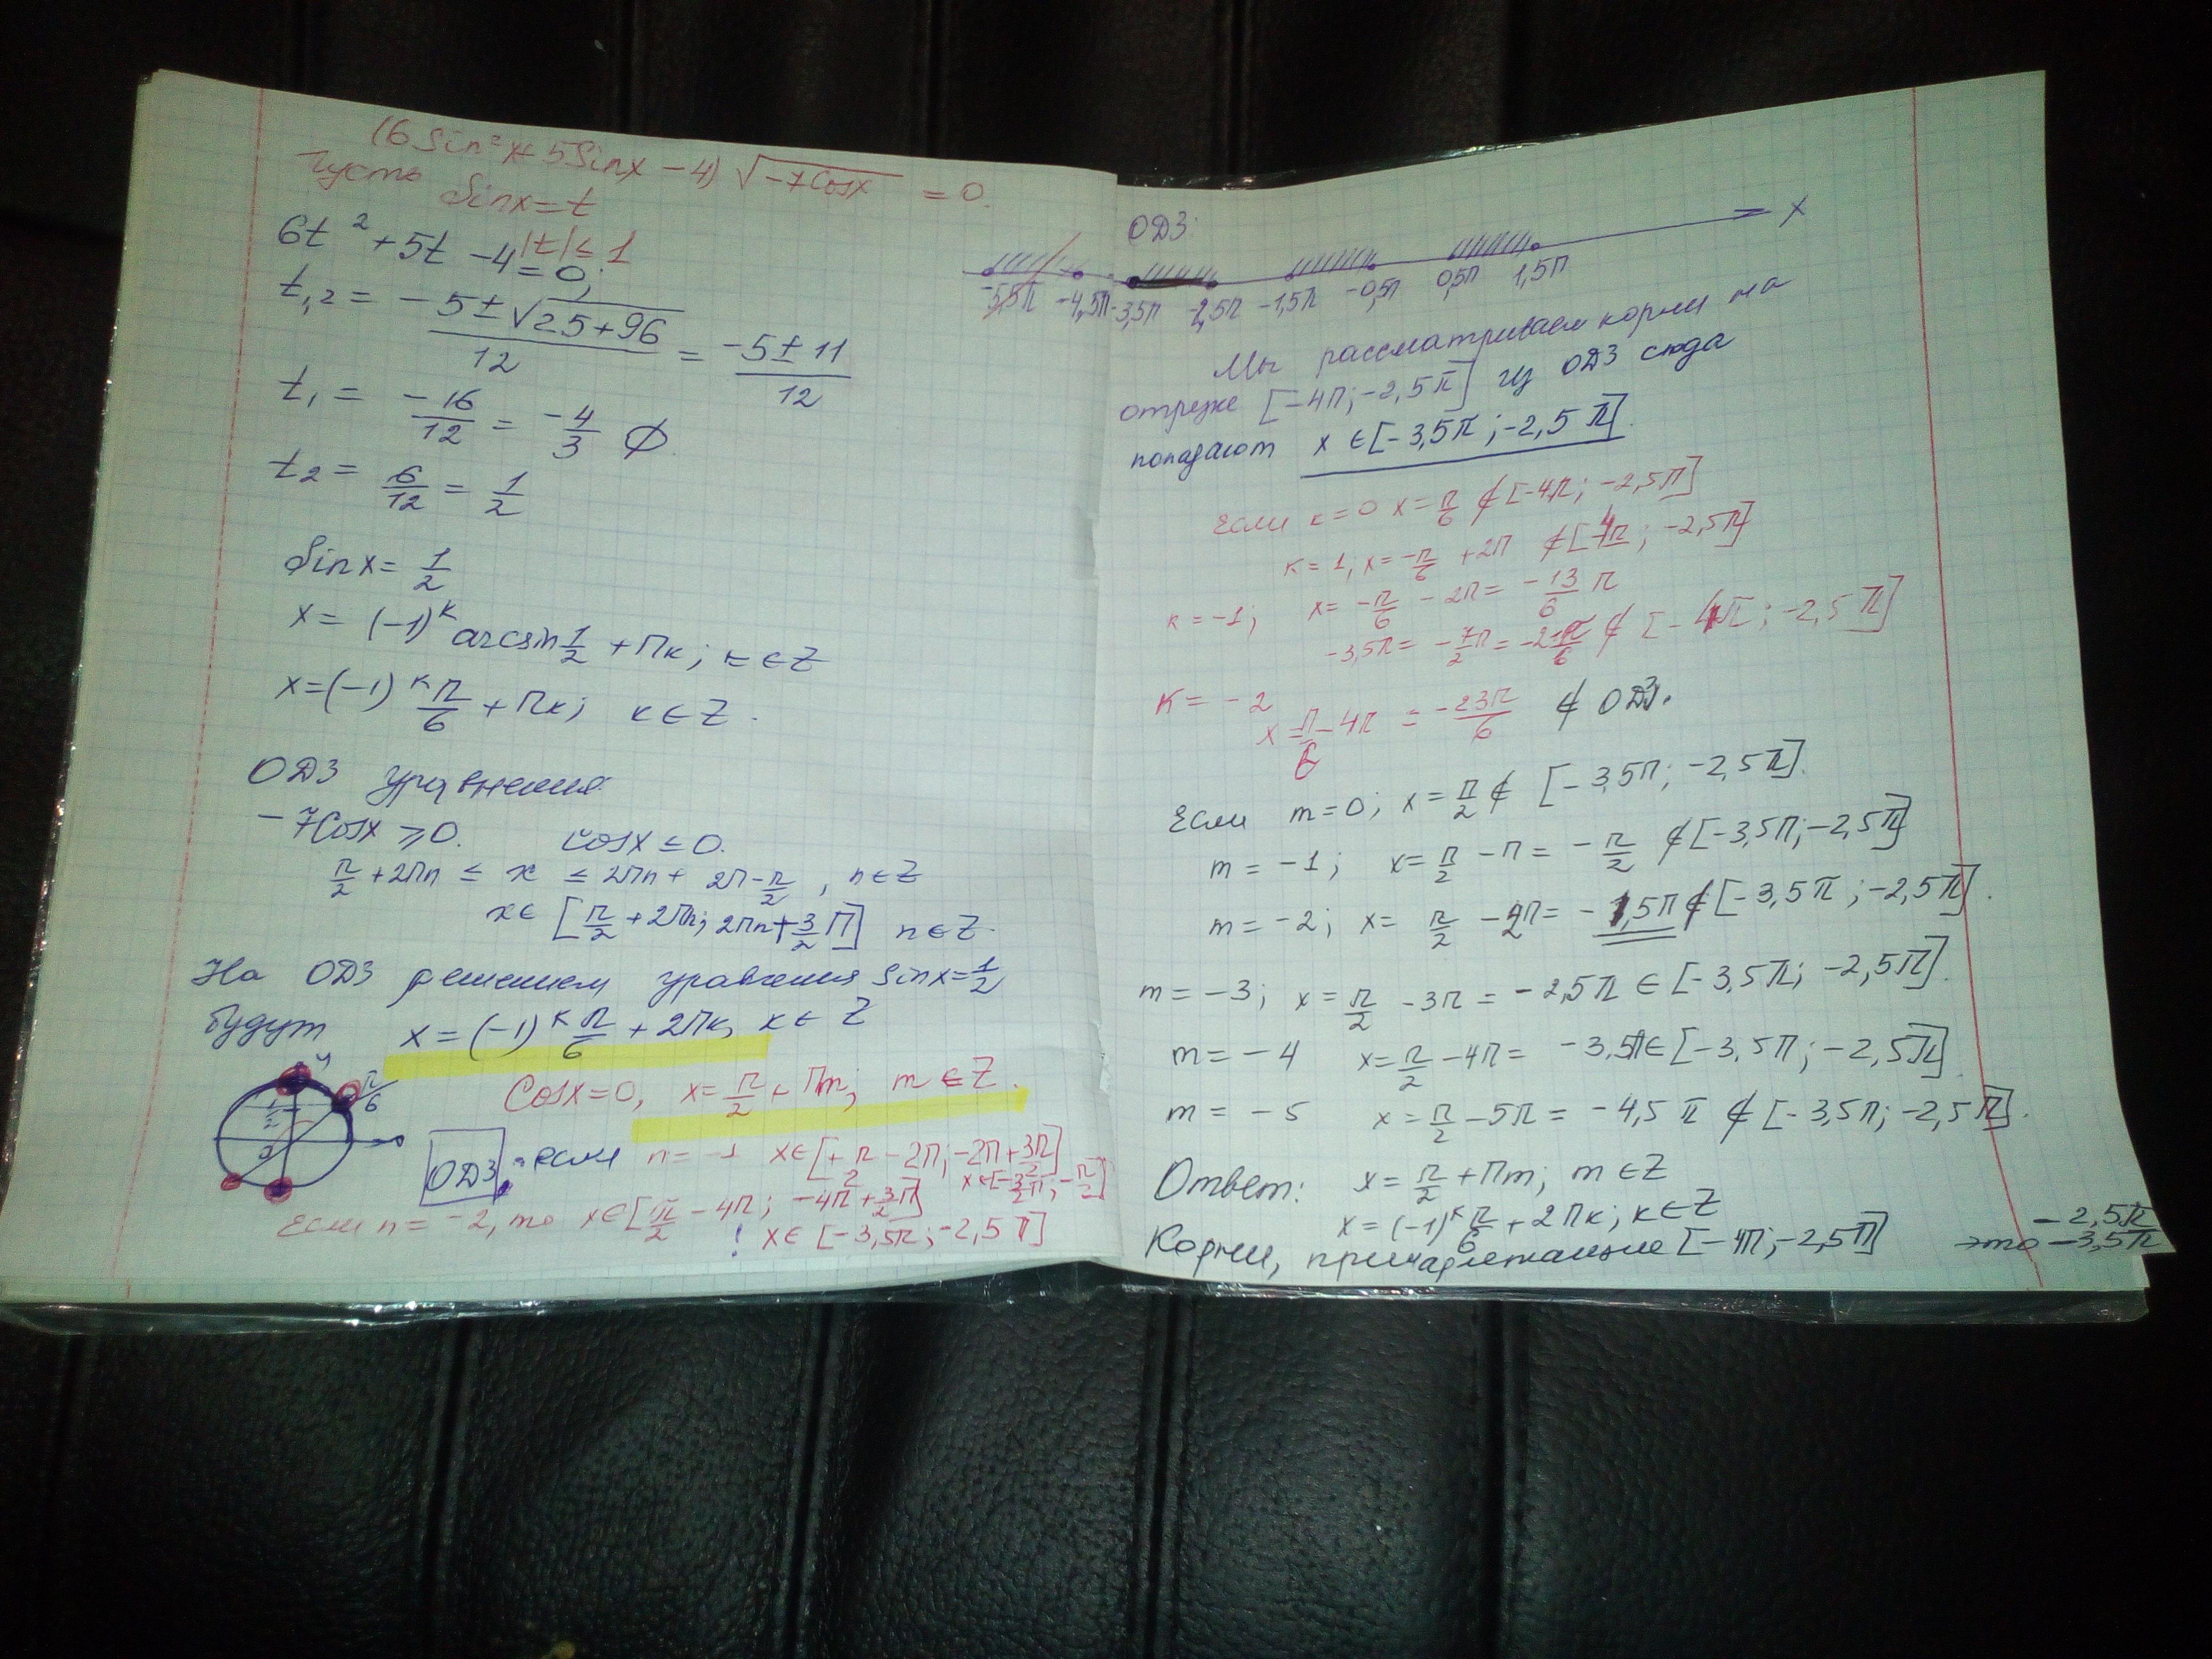 (6 Sin²x + 5 Sinx − 4) √(−7Cosx) = 0.
Пусть Sinx = t
|t| ≤ 1
6t² + 5t − 4 = 0;
t₁,₂ = (−5 ± √(25+96))/12 = (−5 ± 11)/12
t₁ = −16/12 = −4/3 ∅.
t₂ = 6/12 = 1/2
Sinx = 1/2
x = (−1)ᵏ arcsin 1/2 + Πk; k ∈ Z
x = (−1)ᵏ π/6 + Πk; k ∈ Z.
ОДЗ уравнения
−7Cosx ⩾ 0. Cosx ≤ 0.
π/2 + 2Πn ≤ x ≤ 2Πn + 2Π − π/2, n ∈ Z
x ∈ [π/2 + 2Πn; 2Πn + 3/2 Π] n ∈ Z.
На ОДЗ решением уравнения Sinx = 1/2
будут x = (−1)ᵏ π/6 + 2Πk, k ∈ Z
Cosx = 0, x = π/2 + Πm; m ∈ Z.
y π/6 1/2 0
ОДЗ: если n = −1 x ∈ [+π/2 − 2Π; −2Π + 3π/2]
x ∈ [−3/2 π; −π/2]
Если n = −2, то x ∈ [π/2 − 4Π; −4Π + 3/2 Π]
! x ∈ [−3,5π; −2,5π]
ОДЗ: x
−5,5π −4,5π −3,5π −2,5π −1,5π −0,5π 0,5π 1,5π
Мы рассматриваем корни на
отрезке [−4π; −2,5π] из ОДЗ сюда
попадают x ∈ [−3,5π; −2,5π].
Если k = 0 x = π/6 ∉ [−4π; −2,5π]
k = 1; x = −π/6 + 2π ∉ [−4π; −2,5π]
k = −1; x = −π/6 − 2π = −13/6 π
−3,5π = −7/2 π = −21π/6 ∉ [−4π; −2,5π]
k = −2
x = π/6 − 4π = −23π/6 ∉ ОДЗ.
Если m = 0; x = π/2 ∉ [−3,5π; −2,5π].
m = −1; x = π/2 − π = −π/2 ∉ [−3,5π; −2,5π]
m = −2; x = π/2 − 2π = −1,5π ∉ [−3,5π; −2,5π].
m = −3; x = π/2 − 3π = −2,5π ∈ [−3,5π; −2,5π].
m = −4 x = π/2 − 4π = −3,5π ∈ [−3,5π; −2,5π]
m = −5 x = π/2 − 5π = −4,5π ∉ [−3,5π; −2,5π].
Ответ: x = π/2 + Πm; m ∈ Z
x = (−1)ᵏ π/6 + 2Πk; k ∈ Z
Корни, принадлежащие [−4π; −2,5π] это −2,5π
−3,5π